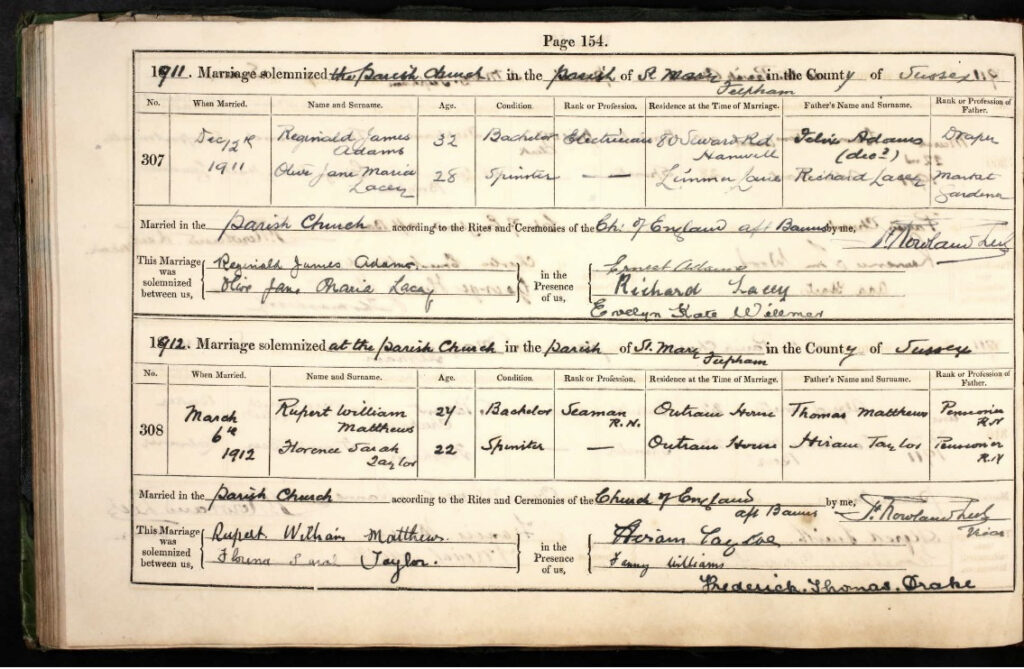 Page 154.
1911. Marriage solemnized the Parish Church in the Parish of St. Mary in the County of Sussex
Felpham
No. When Married. Name and Surname. Age. Condition. Rank or Profession. Residence at the Time of Marriage. Father's Name and Surname. Rank or Profession of Father.
307 Dec 12th 1911 Reginald James Adams 32 Bachelor Electrician 80 Seward Rd Hanwell Felix Adams (decd) Draper
Olive Jane Maria Lacey 28 Spinster — — Limmer Lane Richard Lacey Market Gardener
Married in the Parish Church according to the Rites and Ceremonies of the Ch: of England aft Banns by me,
This Marriage was solemnized between us, Reginald James Adams. Olive Jane Maria Lacey in the Presence of us, Ernest Adams Richard Lacey
Evelyn Kate Willmer
1912. Marriage solemnized at the Parish Church in the Parish of St. Mary in the County of Sussex
Felpham
No. When Married. Name and Surname. Age. Condition. Rank or Profession. Residence at the Time of Marriage. Father's Name and Surname. Rank or Profession of Father.
308 March 6th 1912 Rupert William Matthews 24 Bachelor Seaman R.N. Outram House Thomas Matthews Pensioner R.N
Florence Sarah Taylor 22 Spinster — Outram House Hiram Taylor Pensioner R.N
Married in the Parish Church according to the Rites and Ceremonies of the Church of England aft Banns by me,
Vicar
This Marriage was solemnized between us, Rupert William Matthews. Taylor. in the Presence of us, Hiram Taylor Fanny Williams
Frederick. Thomas. Drake